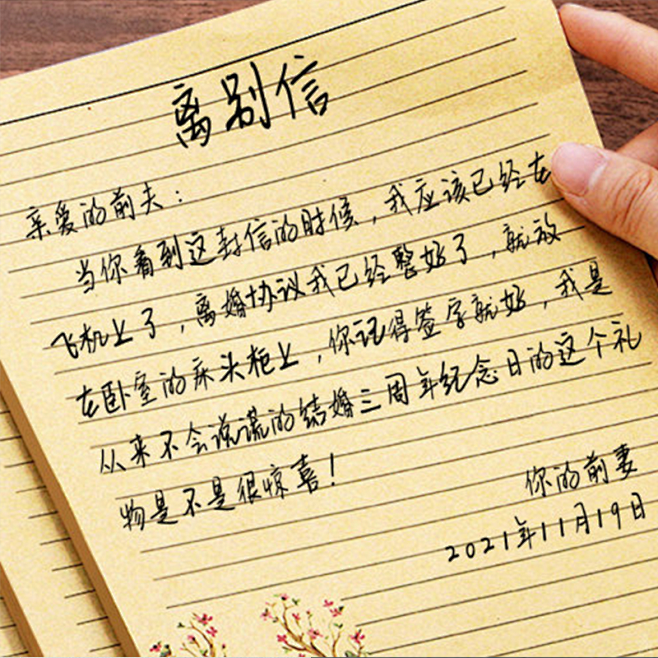 离别信
亲爱的前夫:
当你看到这封信的时候,我应该已经在
飞机上了,离婚协议我已经整好了,就放
在卧室的床头柜上,你记得签字就好,我是
从来不会说谎的结婚三周年纪念日的这个礼
物是不是很惊喜!
你的前妻
2021年11月19日